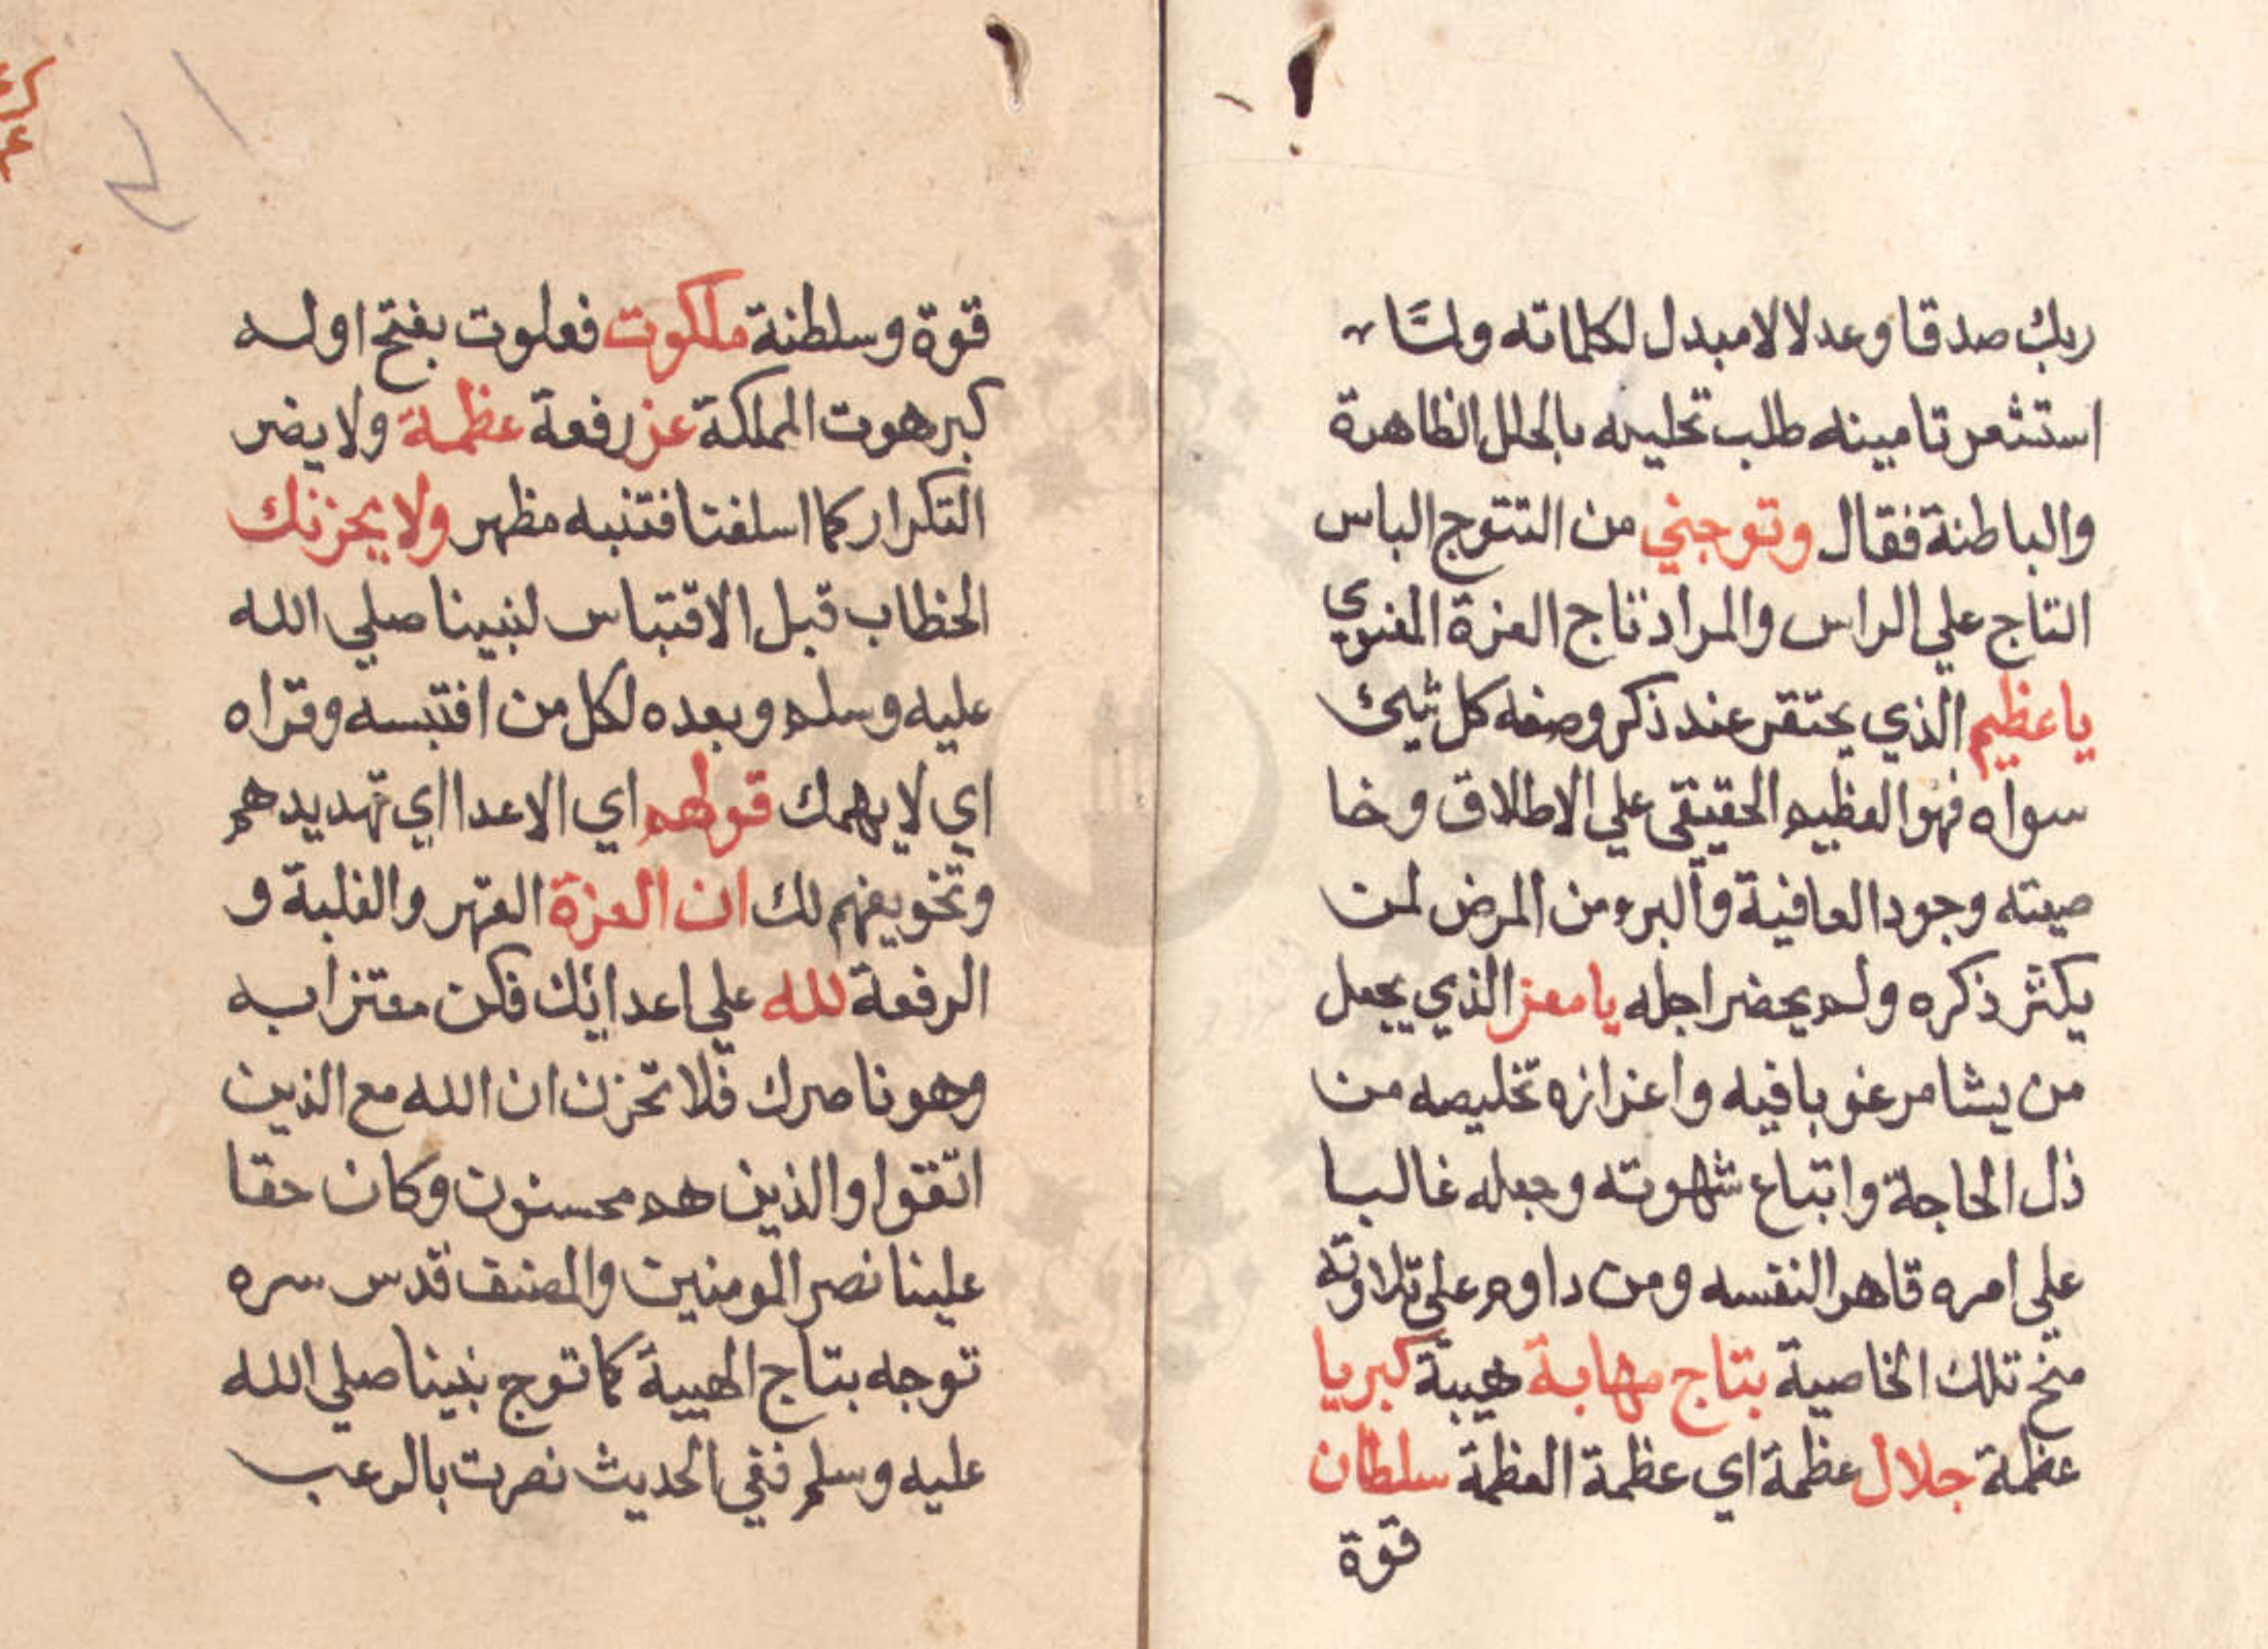 ربك صدقا وعدلا لا مبدل لكلماته ولمّا
استشعر تامينه طلب تحليه بالحلل الظاهرة
والباطنة فقال وتوجني من التتوج الباس
التاج علي الراس والمراد تاج العزة المعنوي
يا عظيم الذي يحتقر عند ذكر وصفه كل شيئ
سواه فهو العظيم الحقيقي علي الاطلاق وخا
صيته وجود العافية والبرء من المرض لمن
يكثر ذكره ولم يحضر اجله يا معز الذي يجعل
من يشا مرغوبا فيه واعزازه تخليصه من
ذل الحاجة واتباع شهوته وجعله غالبا
علي امره قاهر النفسه ومن داوم علي تلاوته
منح تلك الخاصية بتاج مهابة هيبة كبريا
عظمة جلال عظمة اي عظمة العظمة سلطان
قوة
قوة وسلطنة ملكوت فعلوت بفتح اوله
كبرهوت المملكة عز رفعة عظمة ولا يضر
التكرار كما اسلفنا فتنبه مظهر ولا يحزنك
الخطاب قبل الاقتباس لنبينا صلي الله
عليه وسلم وبعده لكل من اقتبسه وقراه
اي لا يهمك قولهم اي الاعدا اي تهديدهم
وتخويفهم لك ان العزة القهر والغلبة و
الرفعة لله علي اعدائك فكن معتزا به
وهو ناصرك فلا تحزن ان الله مع الذين
اتقوا والذين هم محسنون وكان حقا
علينا نصر المومنين والمصنف قدس سره
توجه بتاج الهيبة كما توج نبينا صلي الله
عليه وسلم ففي الحديث نصرت بالرعب